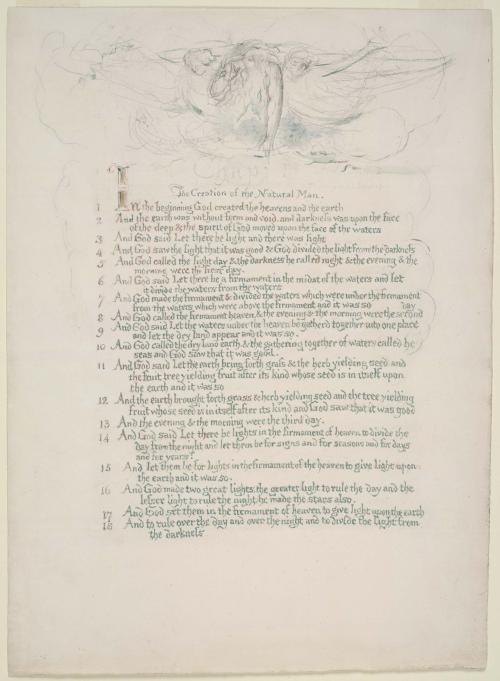 Chap: 1
The Creation of the Natural Man.
1 In the beginning God created the heavens and the earth
2 And the earth was without form and void. and darkness was upon the face
of the deep & the spirit of God moved upon the face of the waters
3 And God said Let there be light and there was light
4 And God saw the light that it was good & God divided the light from the darkness
5 And God called the light day & the darkness he called night & the evening & the
morning were the first day.
6 And God said Let there be a firmament in the midst of the waters and let
it divide the waters from the waters
7 And God made the firmament & divided the waters which were under the firmament
from the waters which were above the firmament and it was so
day
8 And God called the firmament heaven, & the evening & the morning were the second
9 And God said Let the waters under the heaven be gathered together into one place
and let the dry land appear and it was so.
10 And God called the dry land earth, & the gathering together of waters called he
seas and God saw that it was good.
11 And God said Let the earth bring forth grass & the herb yielding seed and
the fruit tree yielding fruit after its kind whose seed is in itself upon
the earth and it was so
12 And the earth brought forth grass & herb yielding seed and the tree yielding
fruit whose seed is in itself after its kind and God saw that it was good
13 And the evening & the morning were the third day.
14 And God said Let there be lights in the firmament of heaven to divide the
day from the night and let them be for signs and for seasons and for days
and for years?
15 And let them be for lights in the firmament of the heaven to give light upon
the earth and it was so.
16 And God made two great lights, the greater light to rule the day and the
lesser light to rule the night, he made the stars also.
17 And God set them in the firmament of heaven to give light upon the earth
18 And to rule over the day and over the night and to divide the light from
the darkness